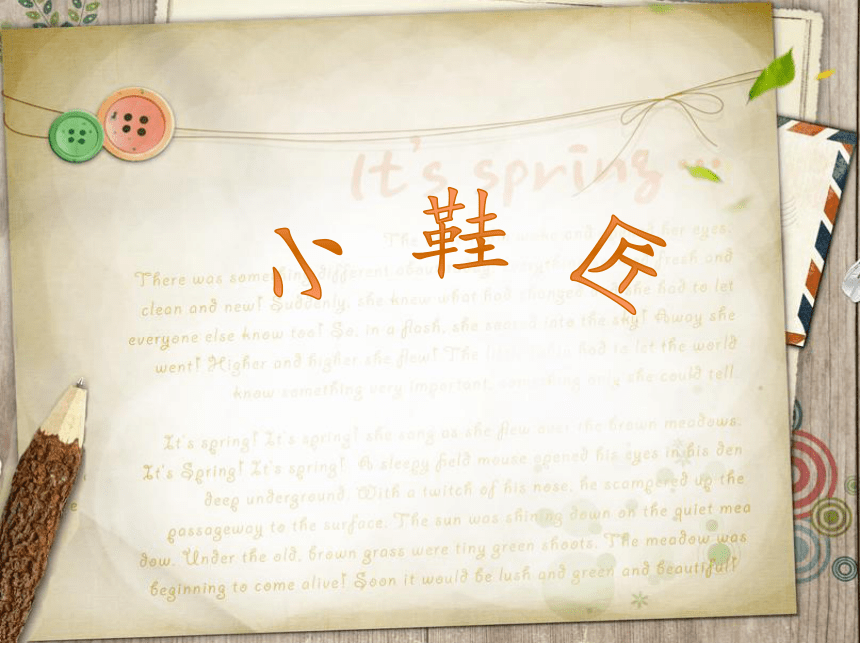 It's spring ...
小鞋匠
The her eyes.
There was something different about fresh and
clean and new! Suddenly, she knew what had changed and she had to let
everyone else know too! So, in a flash, she soared into the sky! Away she
went! Higher and higher she flew! The little had to let the world
know something very important, something only she could tell.
It's spring! It's spring! she sang as she flew over the brown meadows.
It's Spring! It's spring! A sleepy field mouse opened his eyes in his den
deep underground. With a twitch of his nose, he scampered up the
passageway to the surface. The sun was shining down on the quiet mea
dow. Under the old, brown grass were tiny green shoots. The meadow was
beginning to come alive! Soon it would be lush and green and beautiful!